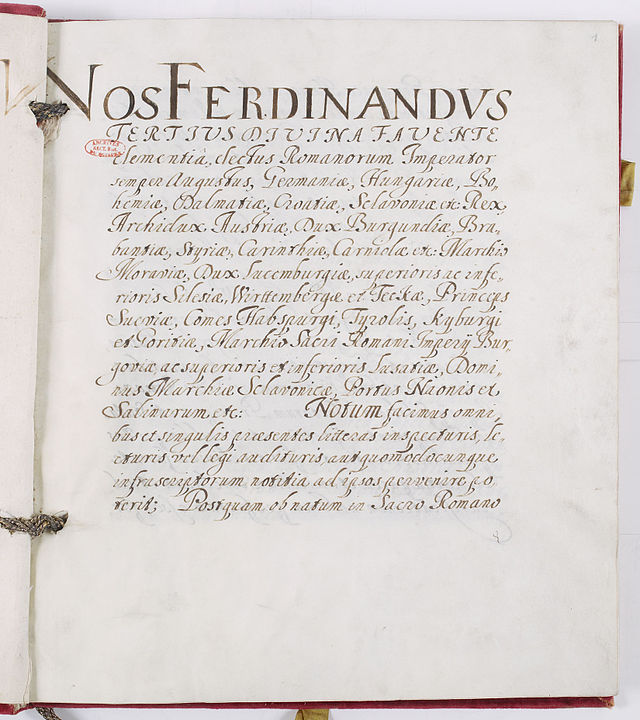 1
NOS FERDINANDVS
TERTIUS DIVINA FAVENTE
clementiâ, electus Romanorum Imperator
semper Augustus, Germaniæ, Hungariæ, Bo,
hemiæ, Dalmatiæ, Croatiæ, Sclavoniæ etc: Rex,
Archidux Austriæ, Dux Burgundiæ, Bra,
bantiæ, Styriæ, Carinthiæ, Carniolæ etc: Marchio
Moraviæ, Dux Lucemburgiæ, superioris ac infe,
rioris Silesiæ, Wirttembergæ et Teckæ, Princeps
Sueviæ, Comes Habspurgi, Tyrolis, Kyburgi
et Goritiæ, Marchio Sacri Romani Imperÿ Bur,
goviæ, ac superioris et inferioris Lusatiæ, Domi,
nus Marchiæ Sclavonicæ, Portus Naonis et
Salinarum etc: Notum facimus omni,
bus et singulis præsentes litteras inspecturis, le,
cturis vel legi audituris, aut quomodocunque
infrascriptorum notitia ad ipsos pervenire po,
terit; Postquam ob natum in Sacro Romano